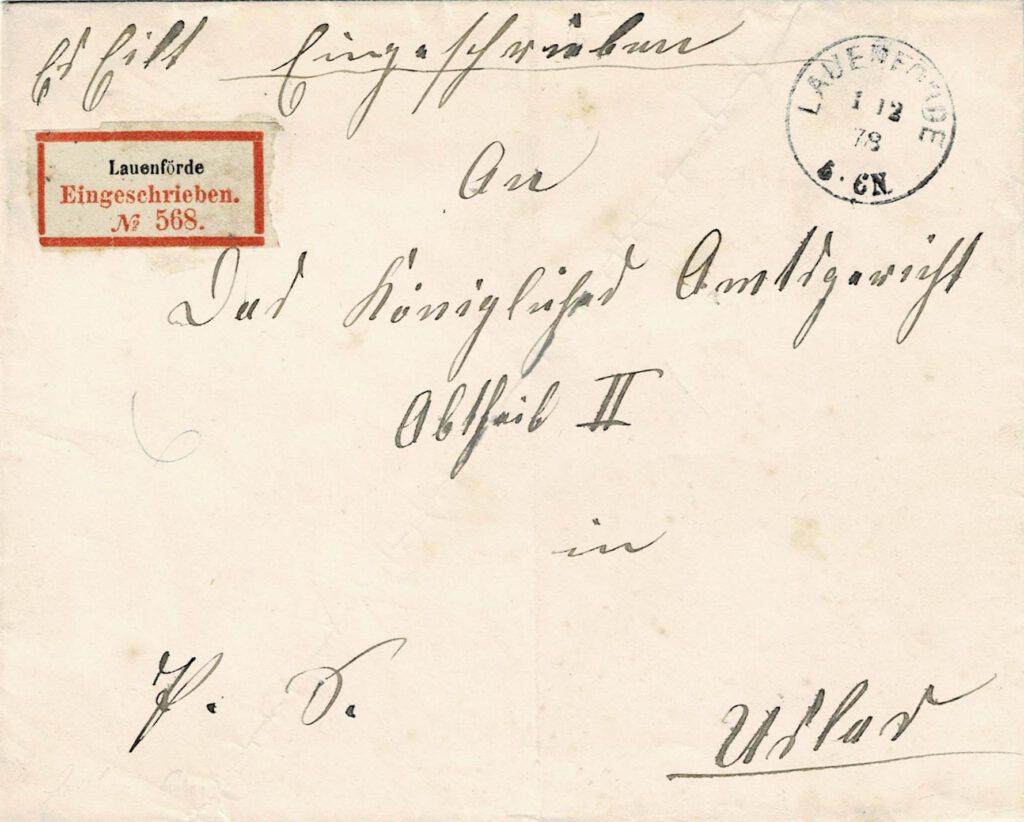 Es Eilt Eingeschrieben
LAUENFÖRDE
1 12
78
5-6N.
Lauenförde
Eingeschrieben.
№ 568.
An
Das Königliches Amtsgericht
Abtheil II
in
P. S.
Uslar